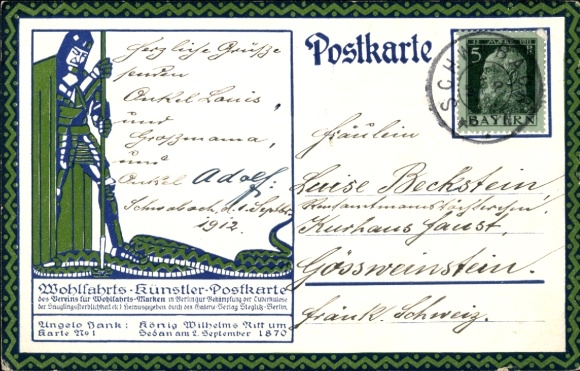 Herzliche Grüße
senden
Onkel Louis,
und
Großmama,
und
Onkel Adolf.
Schwabach, d. 1. Septbr.
1912.
Wohlfahrts-Künstler-Postkarte
des Vereins für Wohlfahrts-Marken in Berlin zur Bekämpfung der Tuberkulose
der Säuglingssterblichkeit etc. Herausgegeben durch den Galerie-Verlag Steglitz-Berlin
Angelo Jank: König Wilhelms Ritt um
Karte No 1 Sedan am 2. September 1870
Postkarte
5
BAYERN
SCH
Fräulein
Luise Beckstein,
Kurhaus Faust,
Gössweinstein.
Fränk. Schweiz.